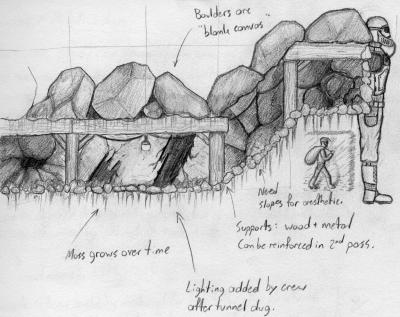 Boulders are
"blank canvas"
Need
slopes for aesthetic.
Supports: wood + metal
Can be reinforced in 2nd pass.
Moss grows over time
Lighting added by crew
after tunnel dug.